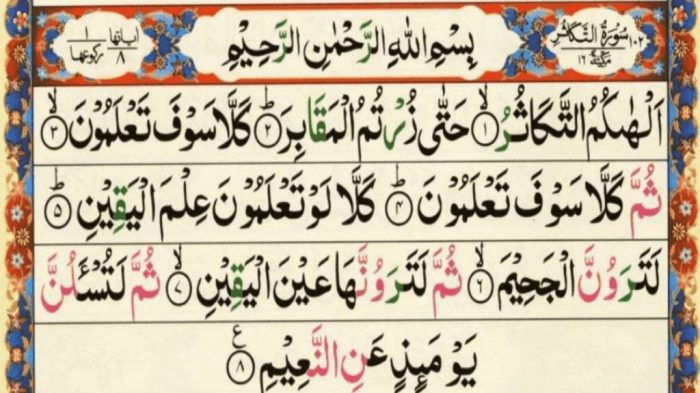 سُوْرَةُ التَّكَاثُرِ ١٠٢
مَكِّيَّةٌ ١٦
بِسْمِ اللهِ الرَّحْمٰنِ الرَّحِيْمِ
اٰيَاتُهَا ٨
رُكُوْعُهَا ١
اَلْهٰىكُمُ التَّكَاثُرُ ۙ﴿١﴾ حَتّٰى زُرْتُمُ الْمَقَابِرَ ؕ﴿٢﴾ كَلَّا سَوْفَ تَعْلَمُوْنَ ۙ﴿٣﴾
ثُمَّ كَلَّا سَوْفَ تَعْلَمُوْنَ ؕ﴿٤﴾ كَلَّا لَوْ تَعْلَمُوْنَ عِلْمَ الْيَقِيْنِ ؕ﴿٥﴾
لَتَرَوُنَّ الْجَحِيْمَ ۙ﴿٦﴾ ثُمَّ لَتَرَوُنَّهَا عَيْنَ الْيَقِيْنِ ۙ﴿٧﴾ ثُمَّ لَتُسْـَٔلُنَّ
يَوْمَئِذٍ عَنِ النَّعِيْمِ ﴿٨﴾ ع